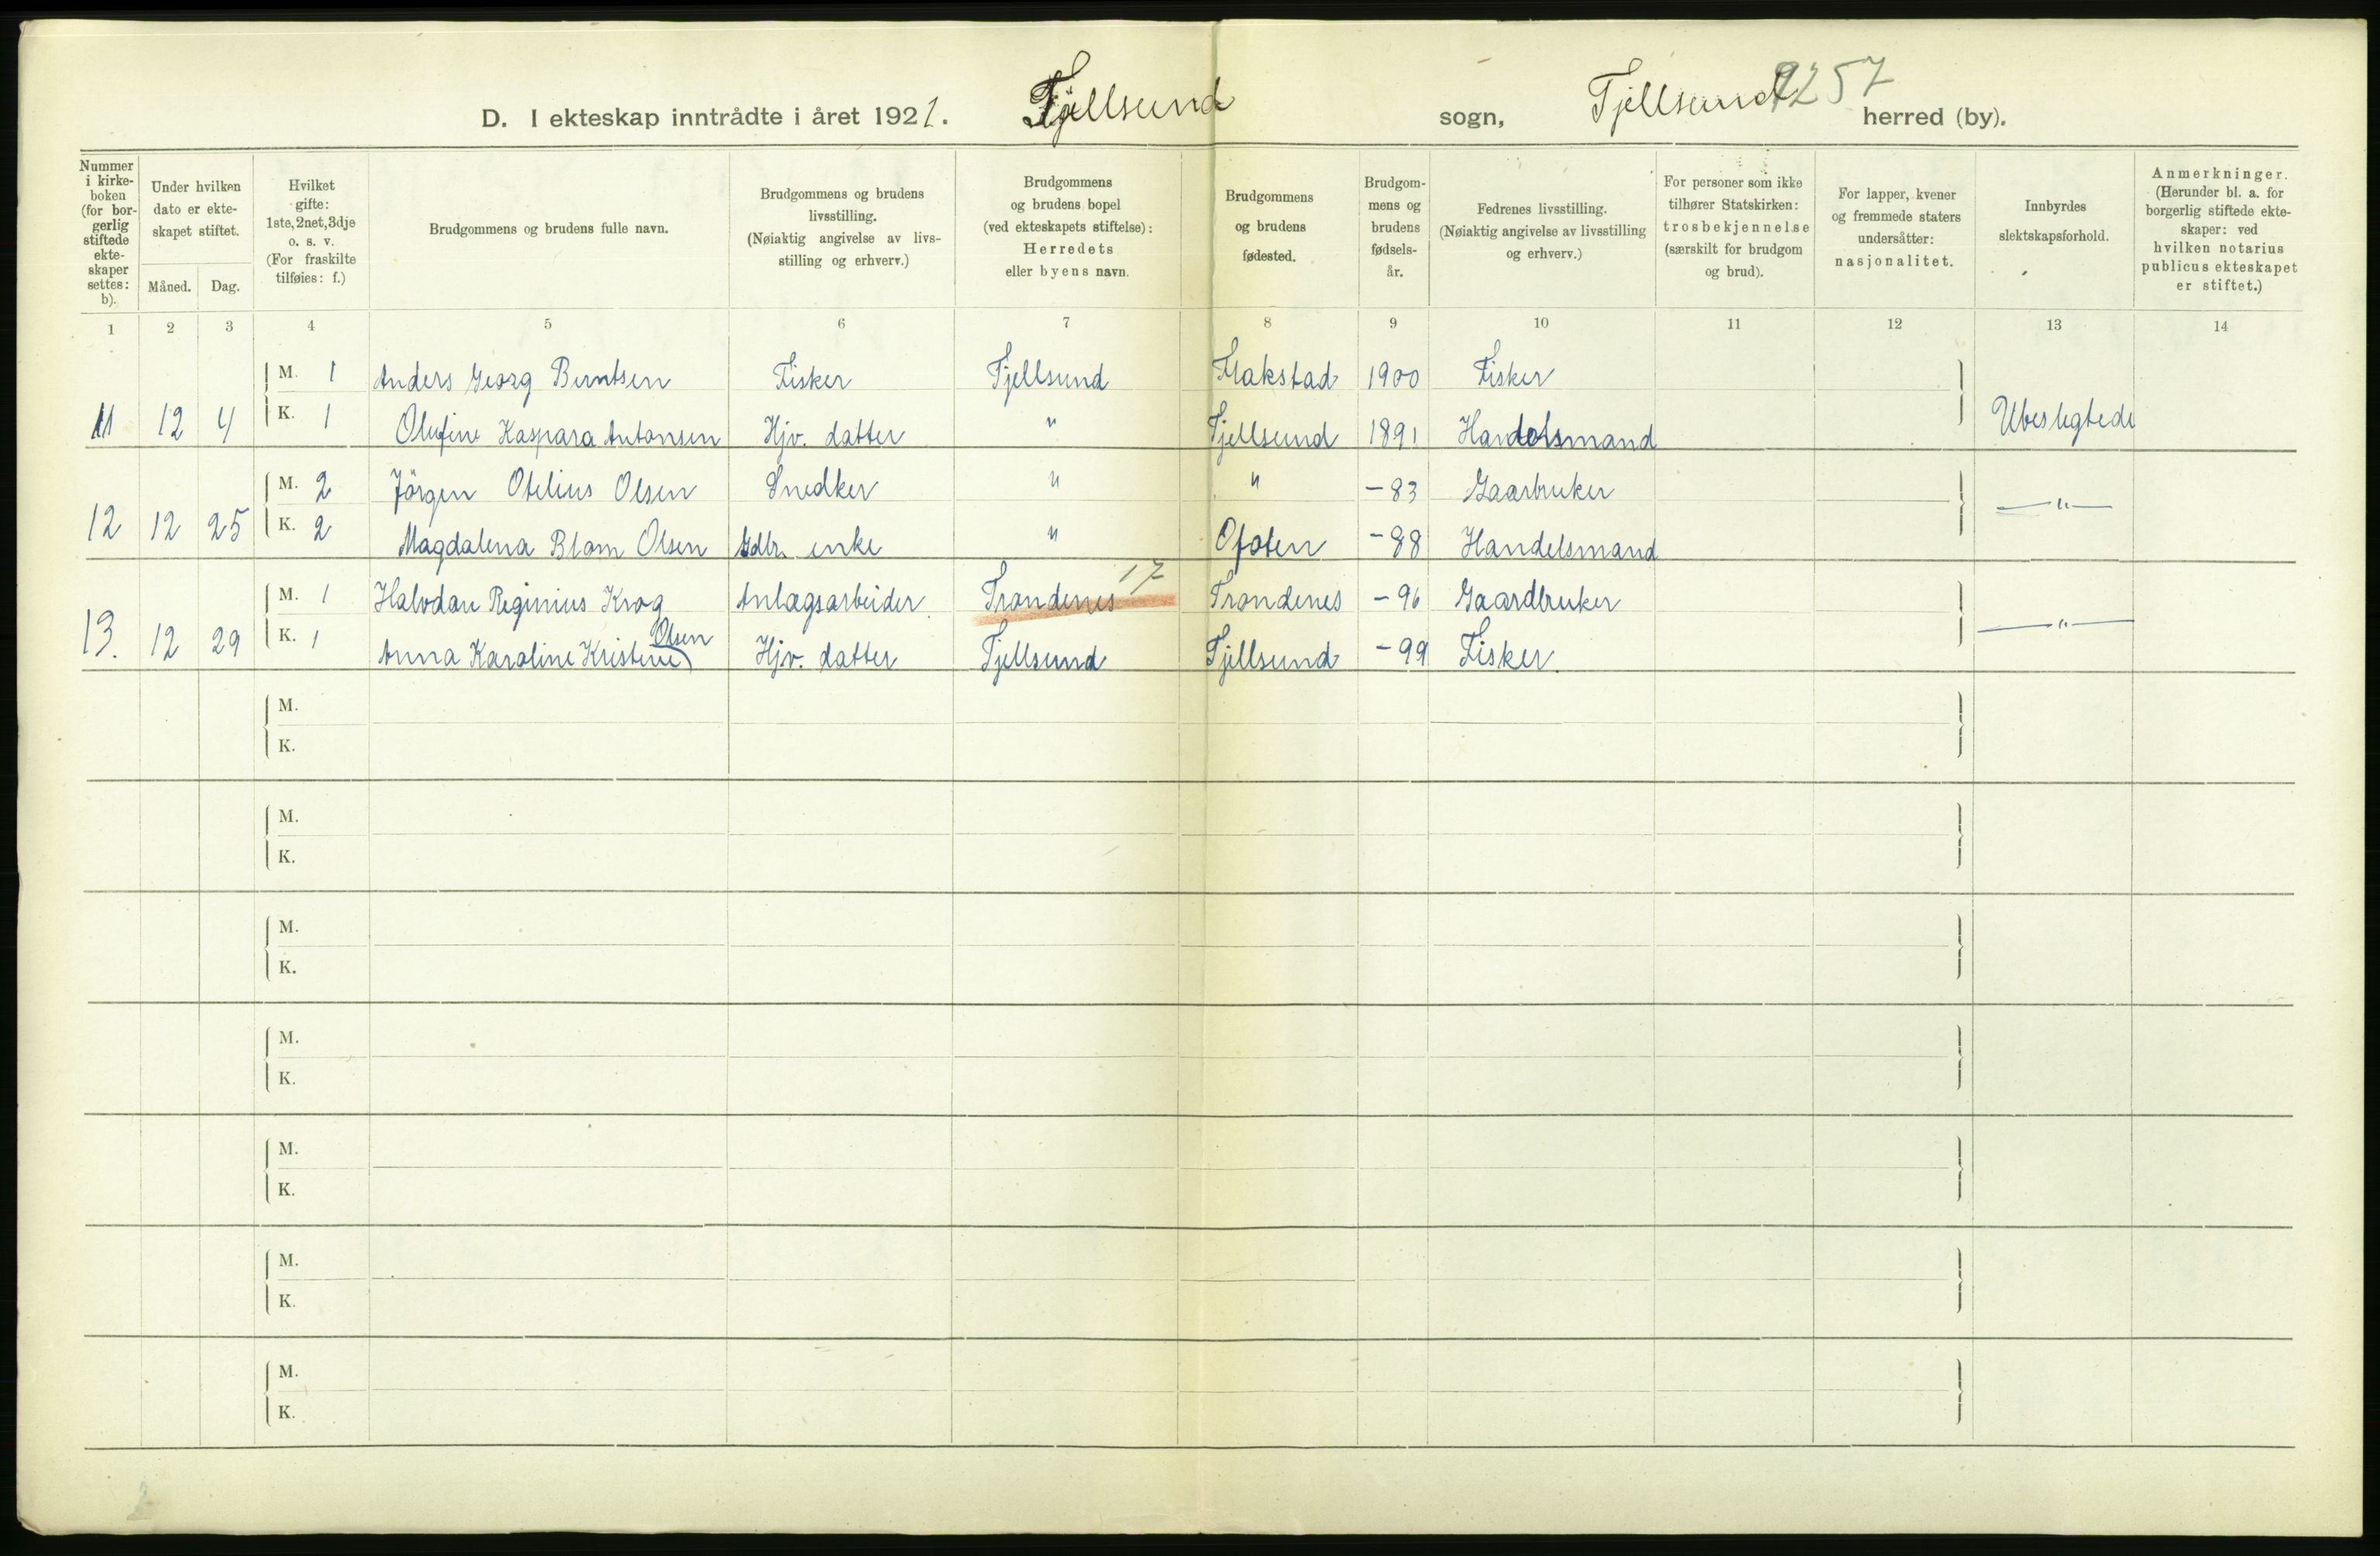 D. I ekteskap inntrådte i året 1921. Tjellsund sogn, Tjellsund herred (by). 9257
Nummer i kirkeboken (for borgerlig stiftede ekteskaper settes: b).
Under hvilken dato er ekteskapet stiftet.
Måned. Dag.
Hvilket gifte: 1ste, 2net, 3dje o. s. v. (For fraskilte tilføies: f.)
Brudgommens og brudens fulle navn.
Brudgommens og brudens livsstilling. (Nøiaktig angivelse av livsstilling og erhverv.)
Brudgommens og brudens bopel (ved ekteskapets stiftelse): Herredets eller byens navn.
Brudgommens og brudens fødested.
Brudgommens og brudens fødselsår.
Fedrenes livsstilling. (Nøiaktig angivelse av livsstilling og erhverv.)
For personer som ikke tilhører Statskirken: trosbekjennelse (særskilt for brudgom og brud).
For lapper, kvener og fremmede staters undersåtter: nasjonalitet.
Innbyrdes slektskapsforhold.
Anmerkninger. (Herunder bl. a. for borgerlig stiftede ekteskaper: ved hvilken notarius publicus ekteskapet er stiftet.)
1 2 3 4 5 6 7 8 9 10 11 12 13 14
M. 1 Anders Georg Berntsen Fisker Tjellsund Flakstad 1900 Fisker
11 12 4 K. 1 Olufine Kaspara Antonsen Hjv. datter " Tjellsund 1891 Handelsmand Ubeslegtede
M. 2 Jörgen Otelius Olsen Snedker " " -83 Gaarbruker
12 12 25 K. 2 Magdalena Blom Olsen Gdbr. enke " Ofoten -88 Handelsmand —"—
M. 1 Halvdan Reginius Krog Anlægsarbeider Trondenes 17 Trondenes -96 Gaardbruker
13. 12 29 K. 1 Anna Karoline Kristine Olsen Hjv. datter Tjellsund Tjellsund -99 Fisker. —"—
M.
K.
M.
K.
M.
K.
M.
K.
M.
K.
M.
K.
M.
K.